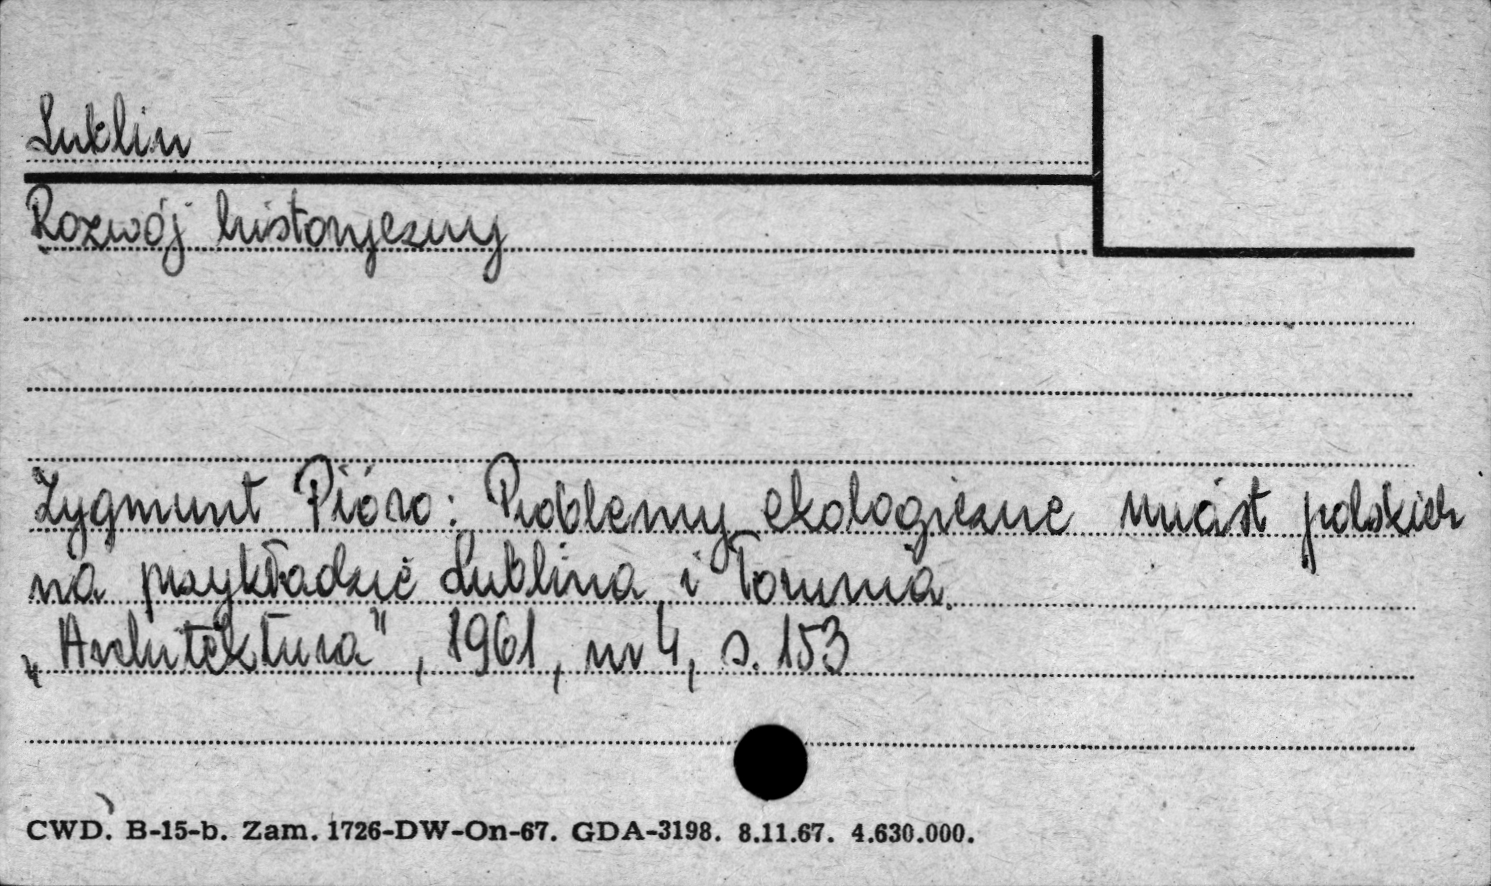 Lublin
Rozwój historyczny
Zygmunt Pióro: Problemy ekologiczne miast polskich
na przykładzie Lublina i Torunia.
„Architektura", 1961, nr 4, s. 153
CWD. B-15-b. Zam. 1726-DW-On-67. GDA-3198. 8.11.67. 4.630.000.